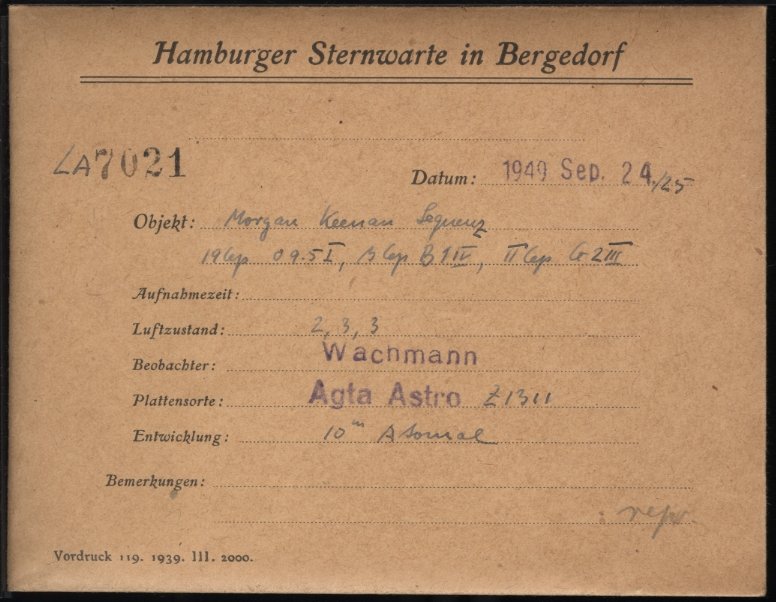 Hamburger Sternwarte in Bergedorf
LA7021
Datum: 1949 Sep. 24./25
Objekt: Morgan Keenan Sequenz
19 Cep O 9.5 I, β Cep B 1 IV, π Cep G 2 III
Aufnahmezeit:
Luftzustand: 2, 3, 3
Beobachter: Wachmann
Plattensorte: Agfa Astro Z1311
Entwicklung: 10ᵐ Atomal
Bemerkungen:
repr.
Vordruck 119. 1939. III. 2000.